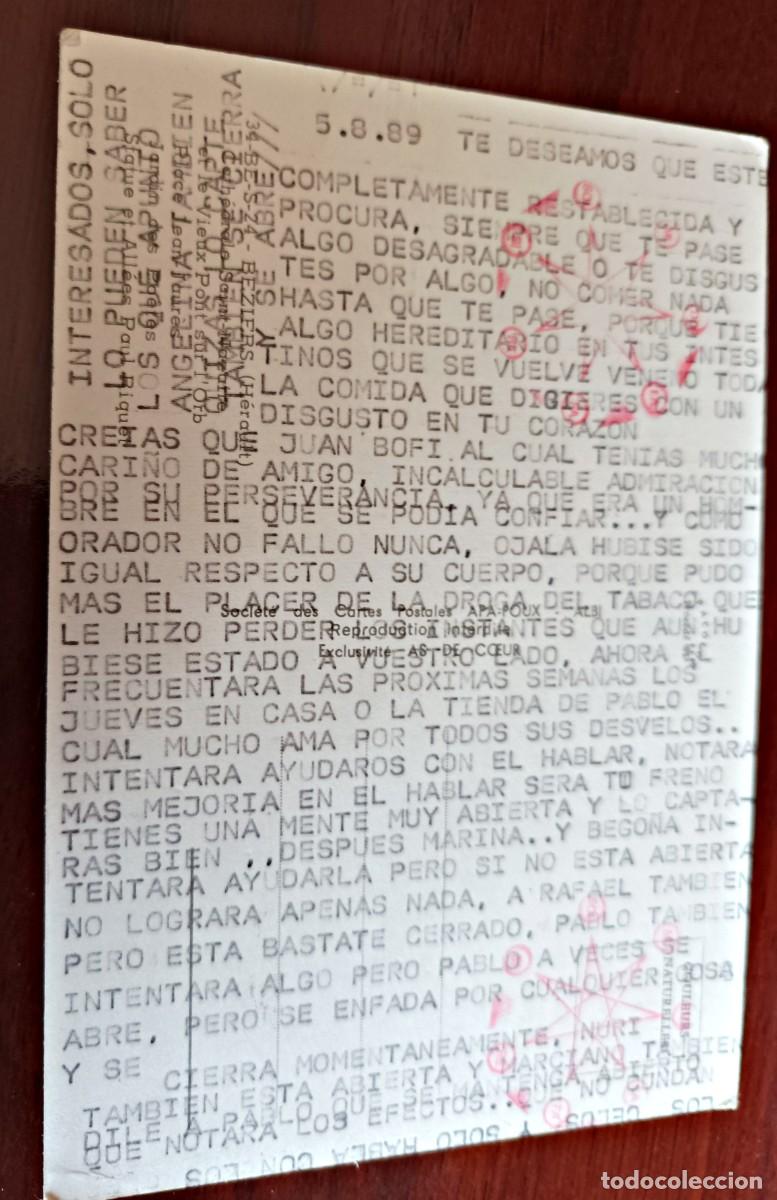 5.8.89 TE DESEAMOS QUE ESTE
COMPLETAMENTE RESTABLECIDA Y
PROCURA, SIEMPRE QUE TE PASE
ALGO DESAGRADABLE O TE DISGUS
TES POR ALGO, NO COMER NADA
HASTA QUE TE PASE, PORQUE TIE
ALGO HEREDITARIO EN TUS NTES
TINOS QUE SE VUELVE VENENO TODA
LA COMIDA QUE DIGIERES CON UN
DISGUSTO EN TU CORAZON
CREIAS QUE JUAN BOFI AL CUAL TENIAS MUCHO
CARIÑO DE AMIGO, INCALCULABLE ADMIRACION
POR SU PERSEVERANCIA, YA QUE ERA UN HOM-
BRE EN EL QUE SE PODIA CONFIAR...Y COMO
ORADOR NO FALLO NUNCA, OJALA HUBISE SIDO
IGUAL RESPECTO A SU CUERPO, PORQUE PUDO
MAS EL PLACER DE LA DROGA DEL TABACO QUE
LE HIZO PERDER LOS INSTANTES QUE AUN HU
BIESE ESTADO A VUESTRO LADO, AHORA EL
FRECUENTARA LAS PROXIMAS SEMANAS LOS
JUEVES EN CASA O LA TIENDA DE PABLO EL
CUAL MUCHO AMA POR TODOS SUS DESVELOS..
INTENTARA AYUDAROS CON EL HABLAR, NOTARA
MAS MEJORIA EN EL HABLAR SERA TU FRENO
TIENES UNA MENTE MUY ABIERTA Y LO CAPTA-
RAS BIEN ..DESPUES MARINA..Y BEGOÑA IN-
TENTARA AYUDARLA PERO SI NO ESTA ABIERTA
NO LOGRARA APENAS NADA, A RAFAEL TAMBIEN
PERO ESTA BASTATE CERRADO, PABLO TAMBIEN
INTENTARA ALGO PERO PABLO A VECES SE
ABRE, PERO SE ENFADA POR CUALQUIER COSA
Y SE CIERRA MOMENTANEAMENTE, NURI
TAMBIEN ESTA ABIERTA Y MARCIANO TAMBIEN
DILE A PABLO QUE SE MANTENGA ABIERTO
QUE NOTARA LOS EFECTOS..QUE NO CUNDAN
LOS CELOS
Y SOLO HABLA CON LOS
INTERESADOS, SOLO
LO PUEDEN SABER
Y SE ABRE///
34-BE-S-24 - BEZIERS (Hérault)
et le Vieux Pont sur l'Orb
Place Jean Jaurès
Jardin des Poètes
Statue et Allées Paul Riquet
Société des Cartes Postales APA-POUX - ALBI
Reproduction Interdite
Exclusivité AS DE CŒUR
COULEURS
NATURELLES
todocoleccion